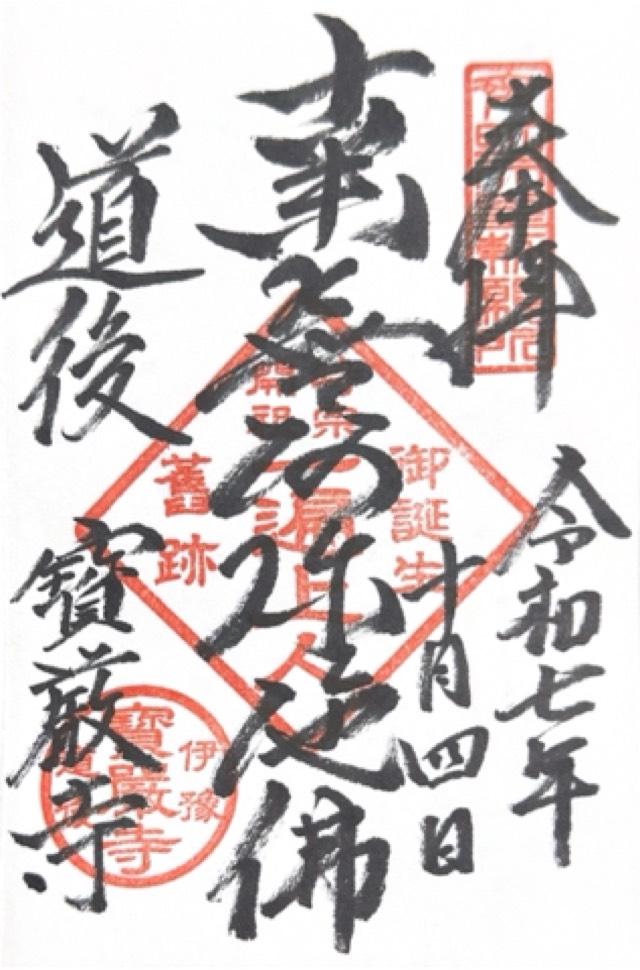 奉拝
令和七年
十月四日
南無阿弥陀佛
道後
寶厳寺
御誕生
宗
開祖
一遍上人
舊跡
伊豫
道後
寶嚴寺